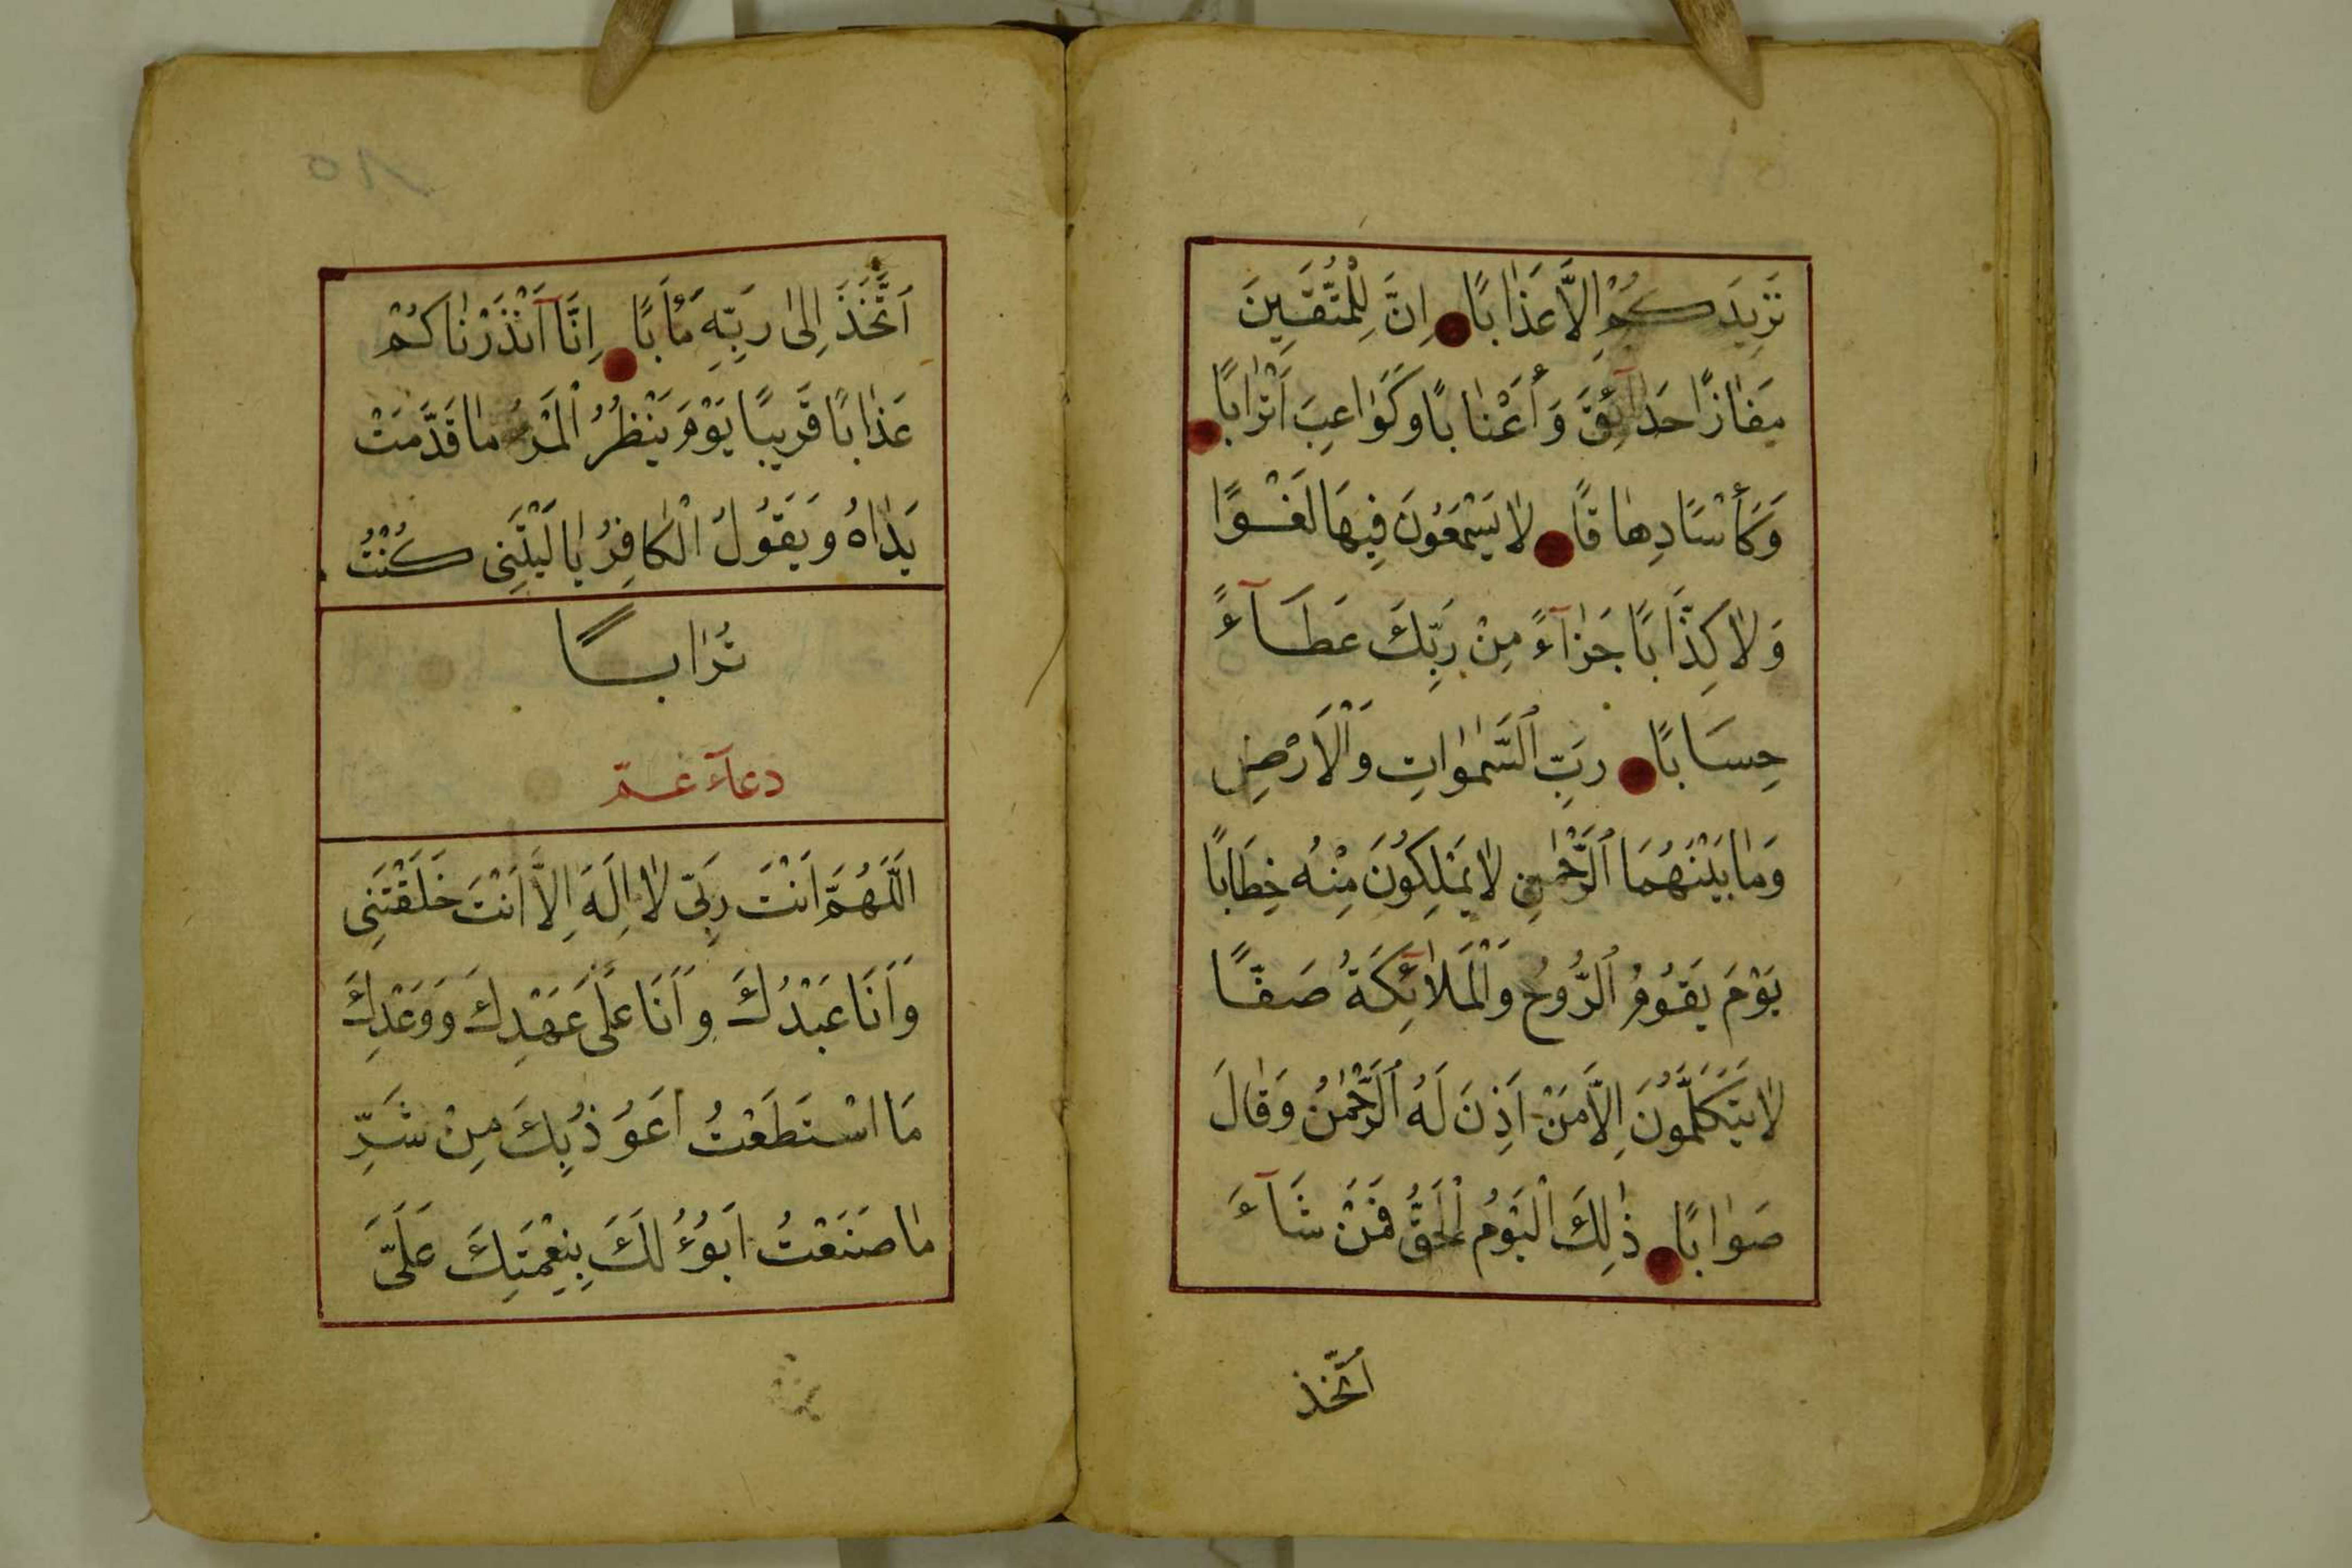 نَزِيدَكُمْ اِلاَّ عَذَابًا اِنَّ لِلْمُتَّقِينَ
مَفَازًا حَدَآئِقَ وَأَعْنَابًا وَكَوَاعِبَ اَتْرَابًا
وَكَأْسًا دِهَاقًا لاَ يَسْمَعُونَ فِيهَا لَغْوًا
وَلاَ كِذَّابًا جَزَآءً مِنْ رَبِّكَ عَطَآءً
حِسَابًا رَبِّ السَّمٰوَاتِ وَالْاَرْضِ
وَمَا بَيْنَهُمَا الرَّحْمٰنِ لاَ يَمْلِكُونَ مِنْهُ خِطَابًا
يَوْمَ يَقُومُ الرُّوحُ وَالْمَلاَئِكَةُ صَفًّا
لاَ يَتَكَلَّمُونَ اِلاَّ مَنْ اَذِنَ لَهُ الرَّحْمٰنُ وَقَالَ
صَوَابًا ذٰلِكَ الْيَوْمُ الْحَقُّ فَمَنْ شَآءَ
اتَّخَذ
اَتَّخَذَ اِلىٰ رَبِّهِ مَأٰبًا اِنَّا اَنْذَرْنَاكُمْ
عَذَابًا قَرِيبًا يَوْمَ يَنْظُرُ الْمَرْءُ مَا قَدَّمَتْ
يَدَاهُ وَيَقُولُ الْكَافِرُ يَا لَيْتَنِى كُنْتُ
تُرَابًا
دعآء عمّ
اَللّٰهُمَّ اَنْتَ رَبِّى لاَ اِلَهَ اِلاَّ اَنْتَ خَلَقْتَنِى
وَاَنَا عَبْدُكَ وَاَنَا عَلَى عَهْدِكَ وَوَعْدِكَ
مَا اسْتَطَعْتُ اَعُوذُ بِكَ مِنْ شَرِّ
مَا صَنَعْتُ اَبُوءُ لَكَ بِنِعْمَتِكَ عَلَىَّ